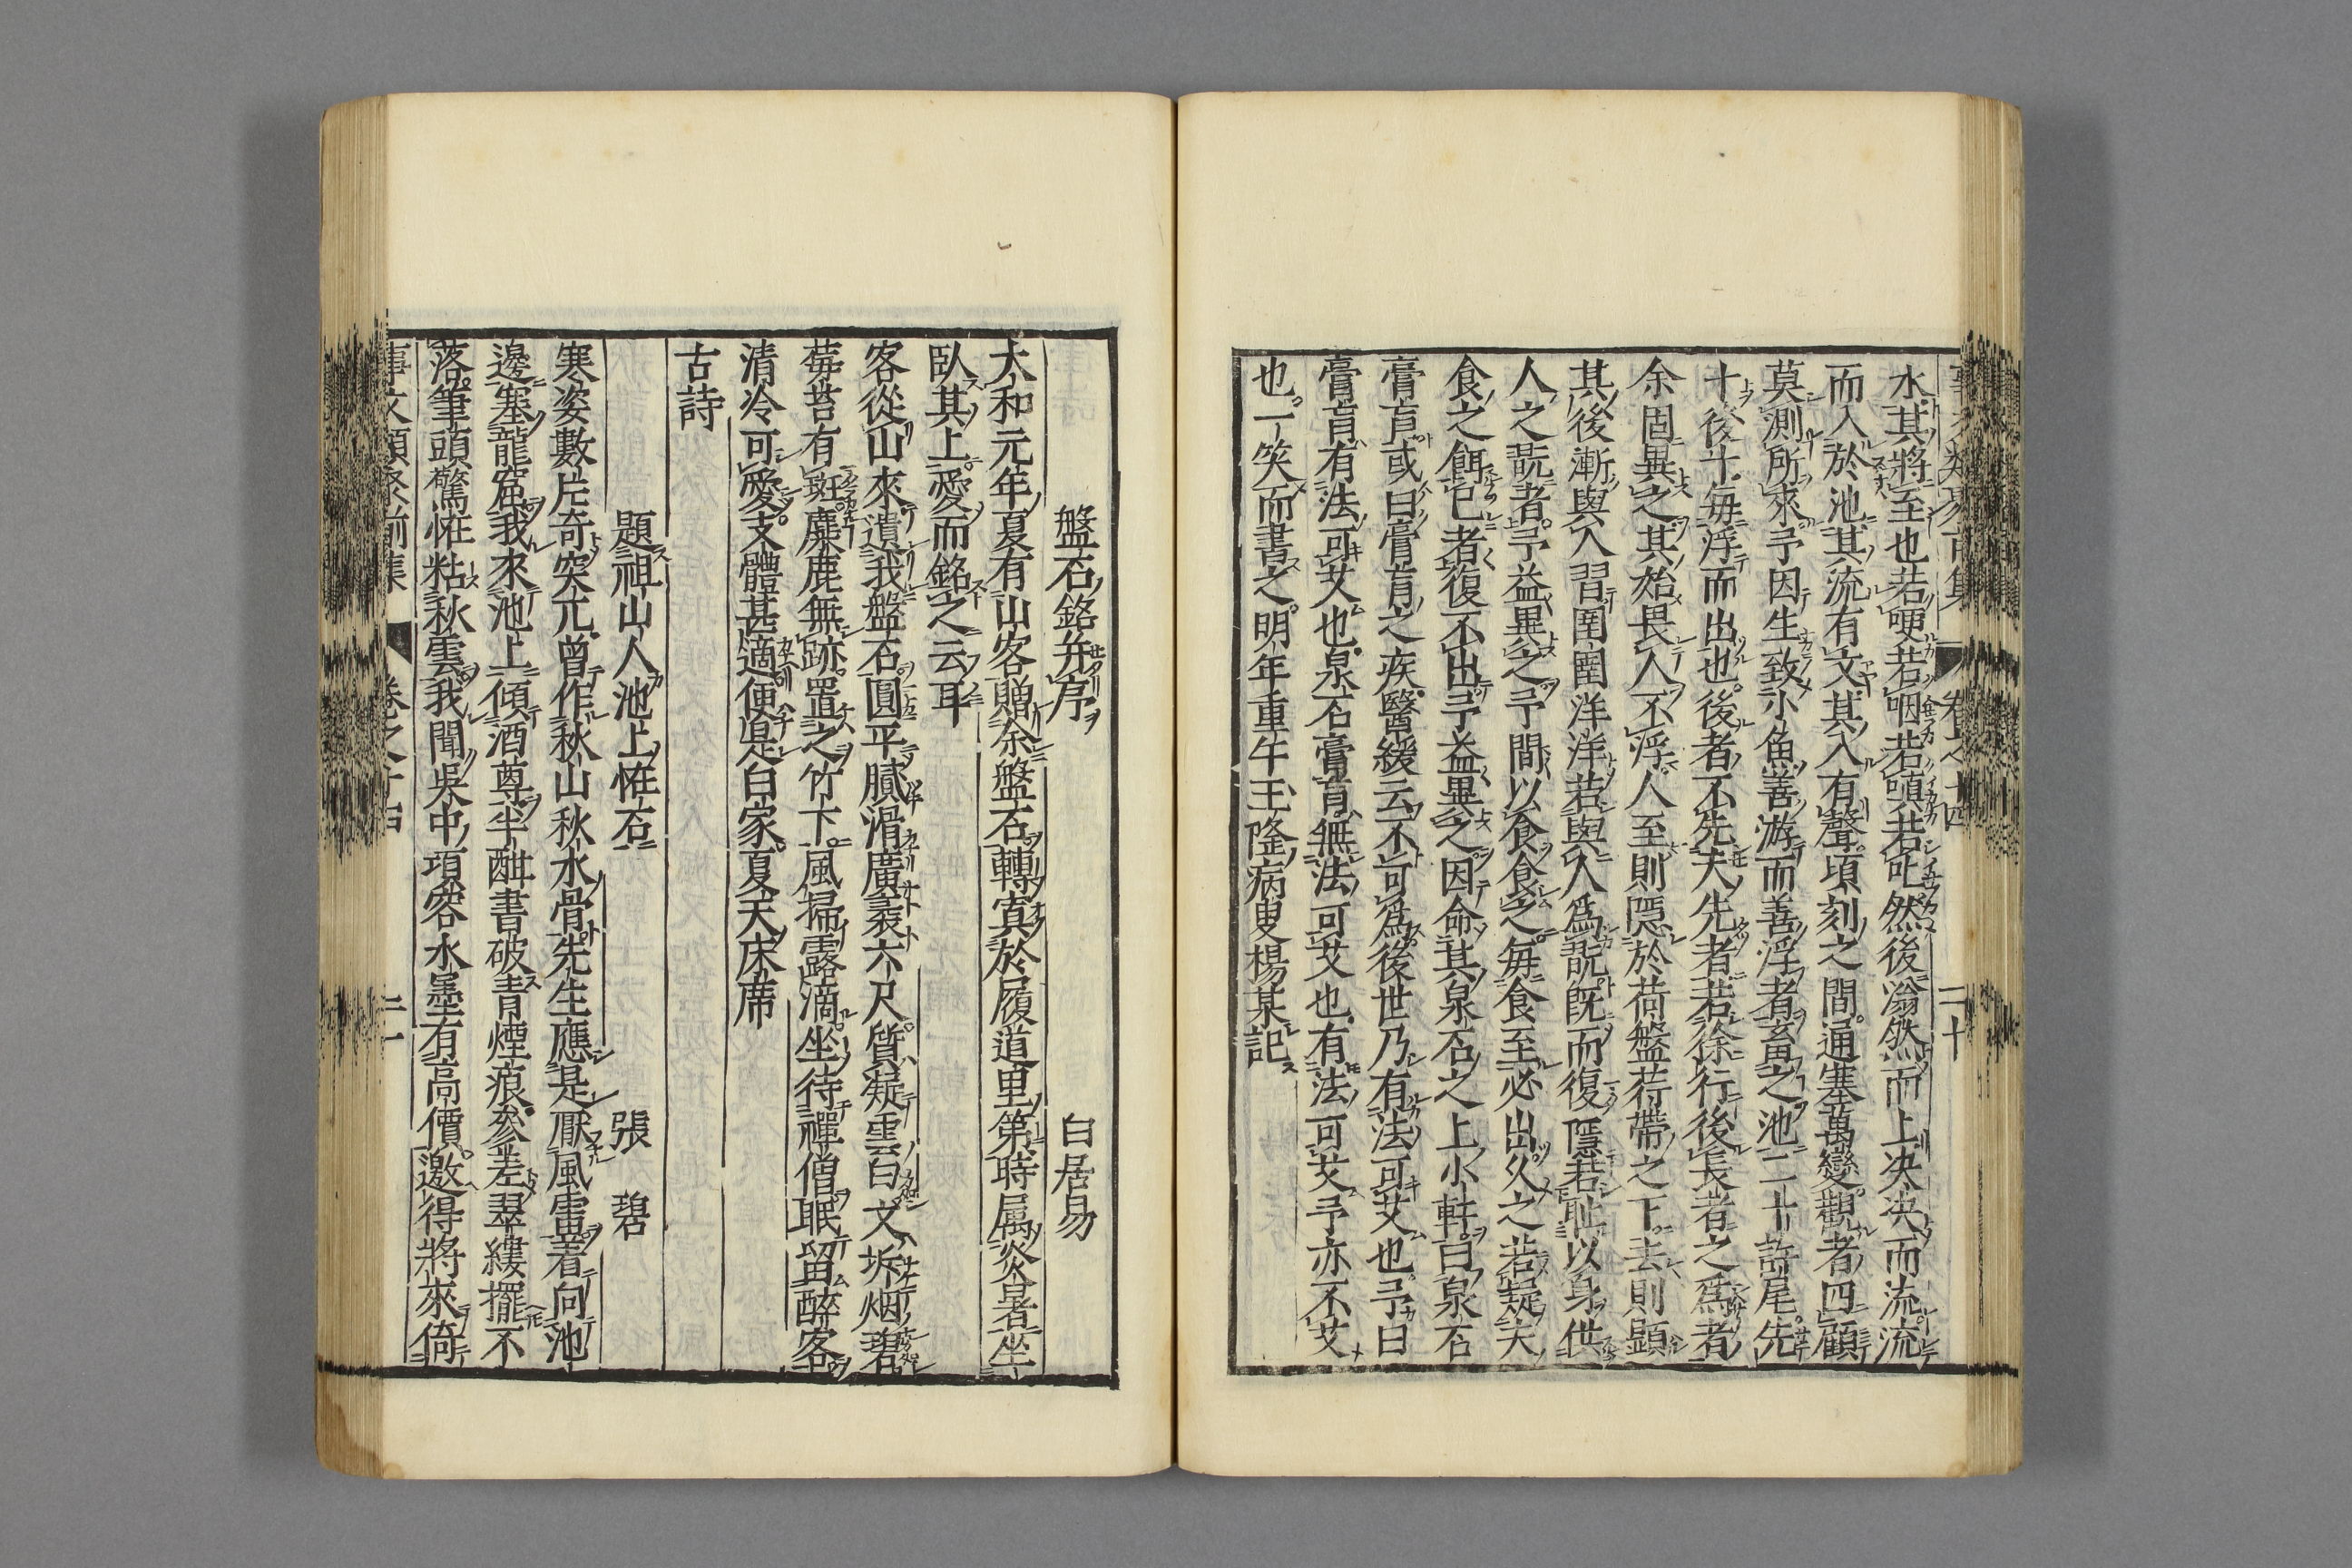 水其將至也若哽若咽若嚬若吐然後滃然而上决决而流流
而入於池其流有文其入有聲頃刻之間通塞萬變觀者四顧
莫測所求予因生致小魚善游而善浮者畜之池二十許尾先
十後十每浮而出也後者不先夫先者若徐行後長者之爲者
余固異之其始畏人不浮人至則隱於荷盤荇帶之下去則顯
其後漸與人習圉圉洋洋若與人爲翫旣而復隱若耻以身供
人之翫者予益異之予間以食食之每食至必出久之若疑夫
食之餌己者復不出予益異之因命其泉石之上小軒曰泉石
膏肓或曰膏肓之疾醫緩云不可爲後世乃有法可艾也予曰
膏肓有法可艾也泉石膏肓無法可艾也有法可艾予亦不艾
也一笑而書之明年重午玉隆病叟楊某記
盤石銘并序 白居易
大和元年夏有山客贈余盤石轉寘於履道里第時屬炎暑坐
臥其上愛而銘之云耳
客從山來遺我盤石圓平膩滑廣袤六尺質凝雲白文坼烟碧
莓苔有斑麋鹿無跡置之竹下風掃露滴坐待禪僧眠留醉客
清冷可愛支體甚適便是白家夏天床席
古詩
題祖山人池上恠石 張碧
寒姿數片奇突兀曾作秋山秋水骨先生應是厭風雷着向池
邊塞龍窟我來池上傾酒尊半酣書破青煙痕參差翠縷擺不
落筆頭驚恠粘秋雲我聞吳中項容水墨有高價邀得將來倚
事文類聚前集 卷之十四 二十一